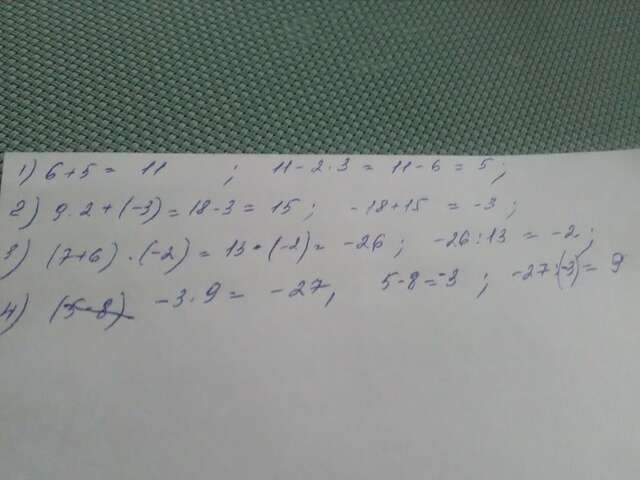 1) 6+5 = 11 ; 11-2·3 = 11-6 = 5;
2) 9·2+(-3)=18-3= 15; -18+15 = -3;
3) (7+6)·(-2)= 13·(-2)= -26; -26:13 = -2;
4) -3·9= -27, 5-8=-3 ; -27:(-3)= 9